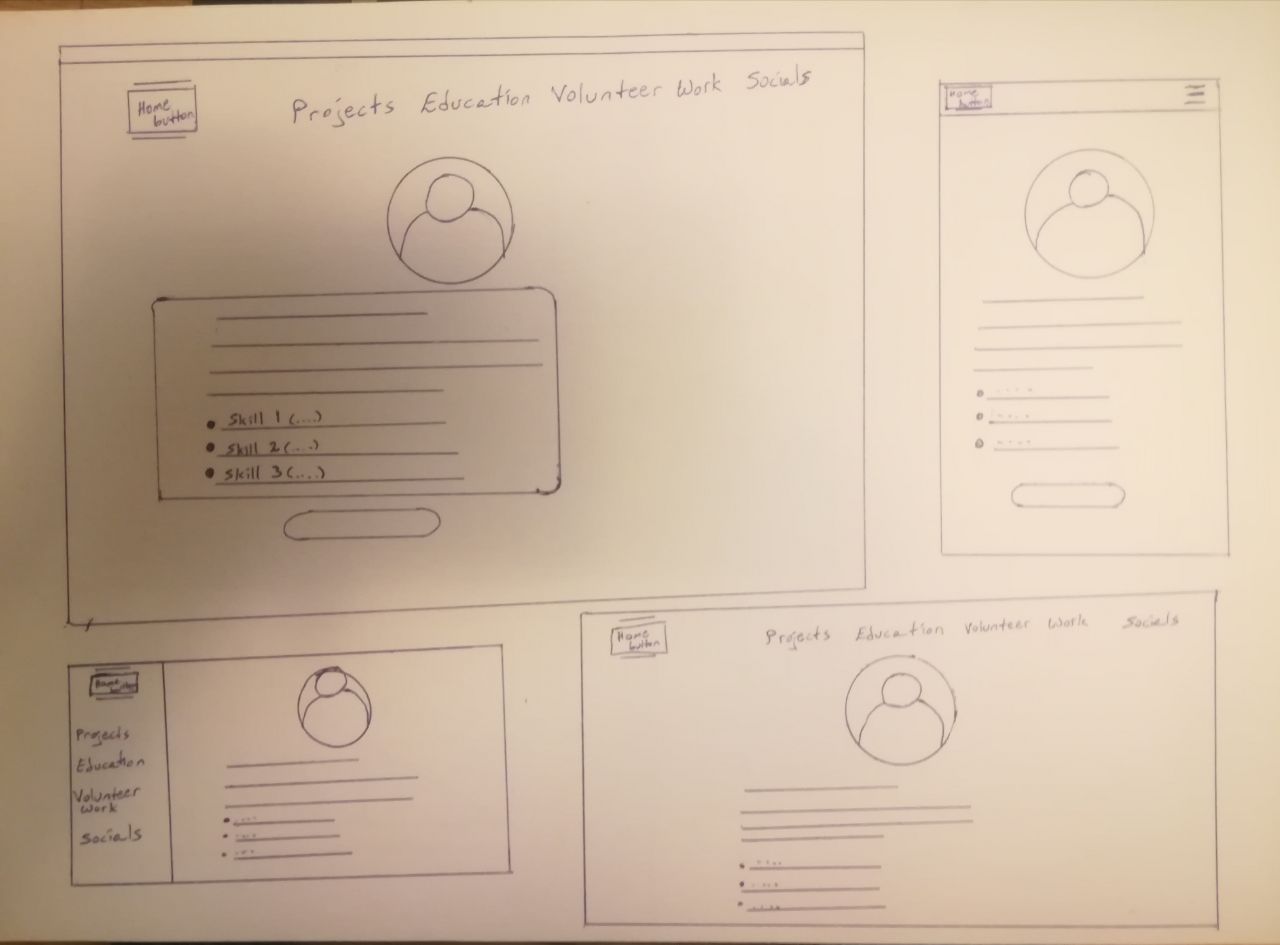 Home
button
Projects Education Volunteer Work Socials
Skill 1 (....)
Skill 2 (....)
Skill 3 (....)
Home
button
Home
button
Projects
Education
Volunteer
Work
Socials
Home
button
Projects Education Volunteer Work Socials